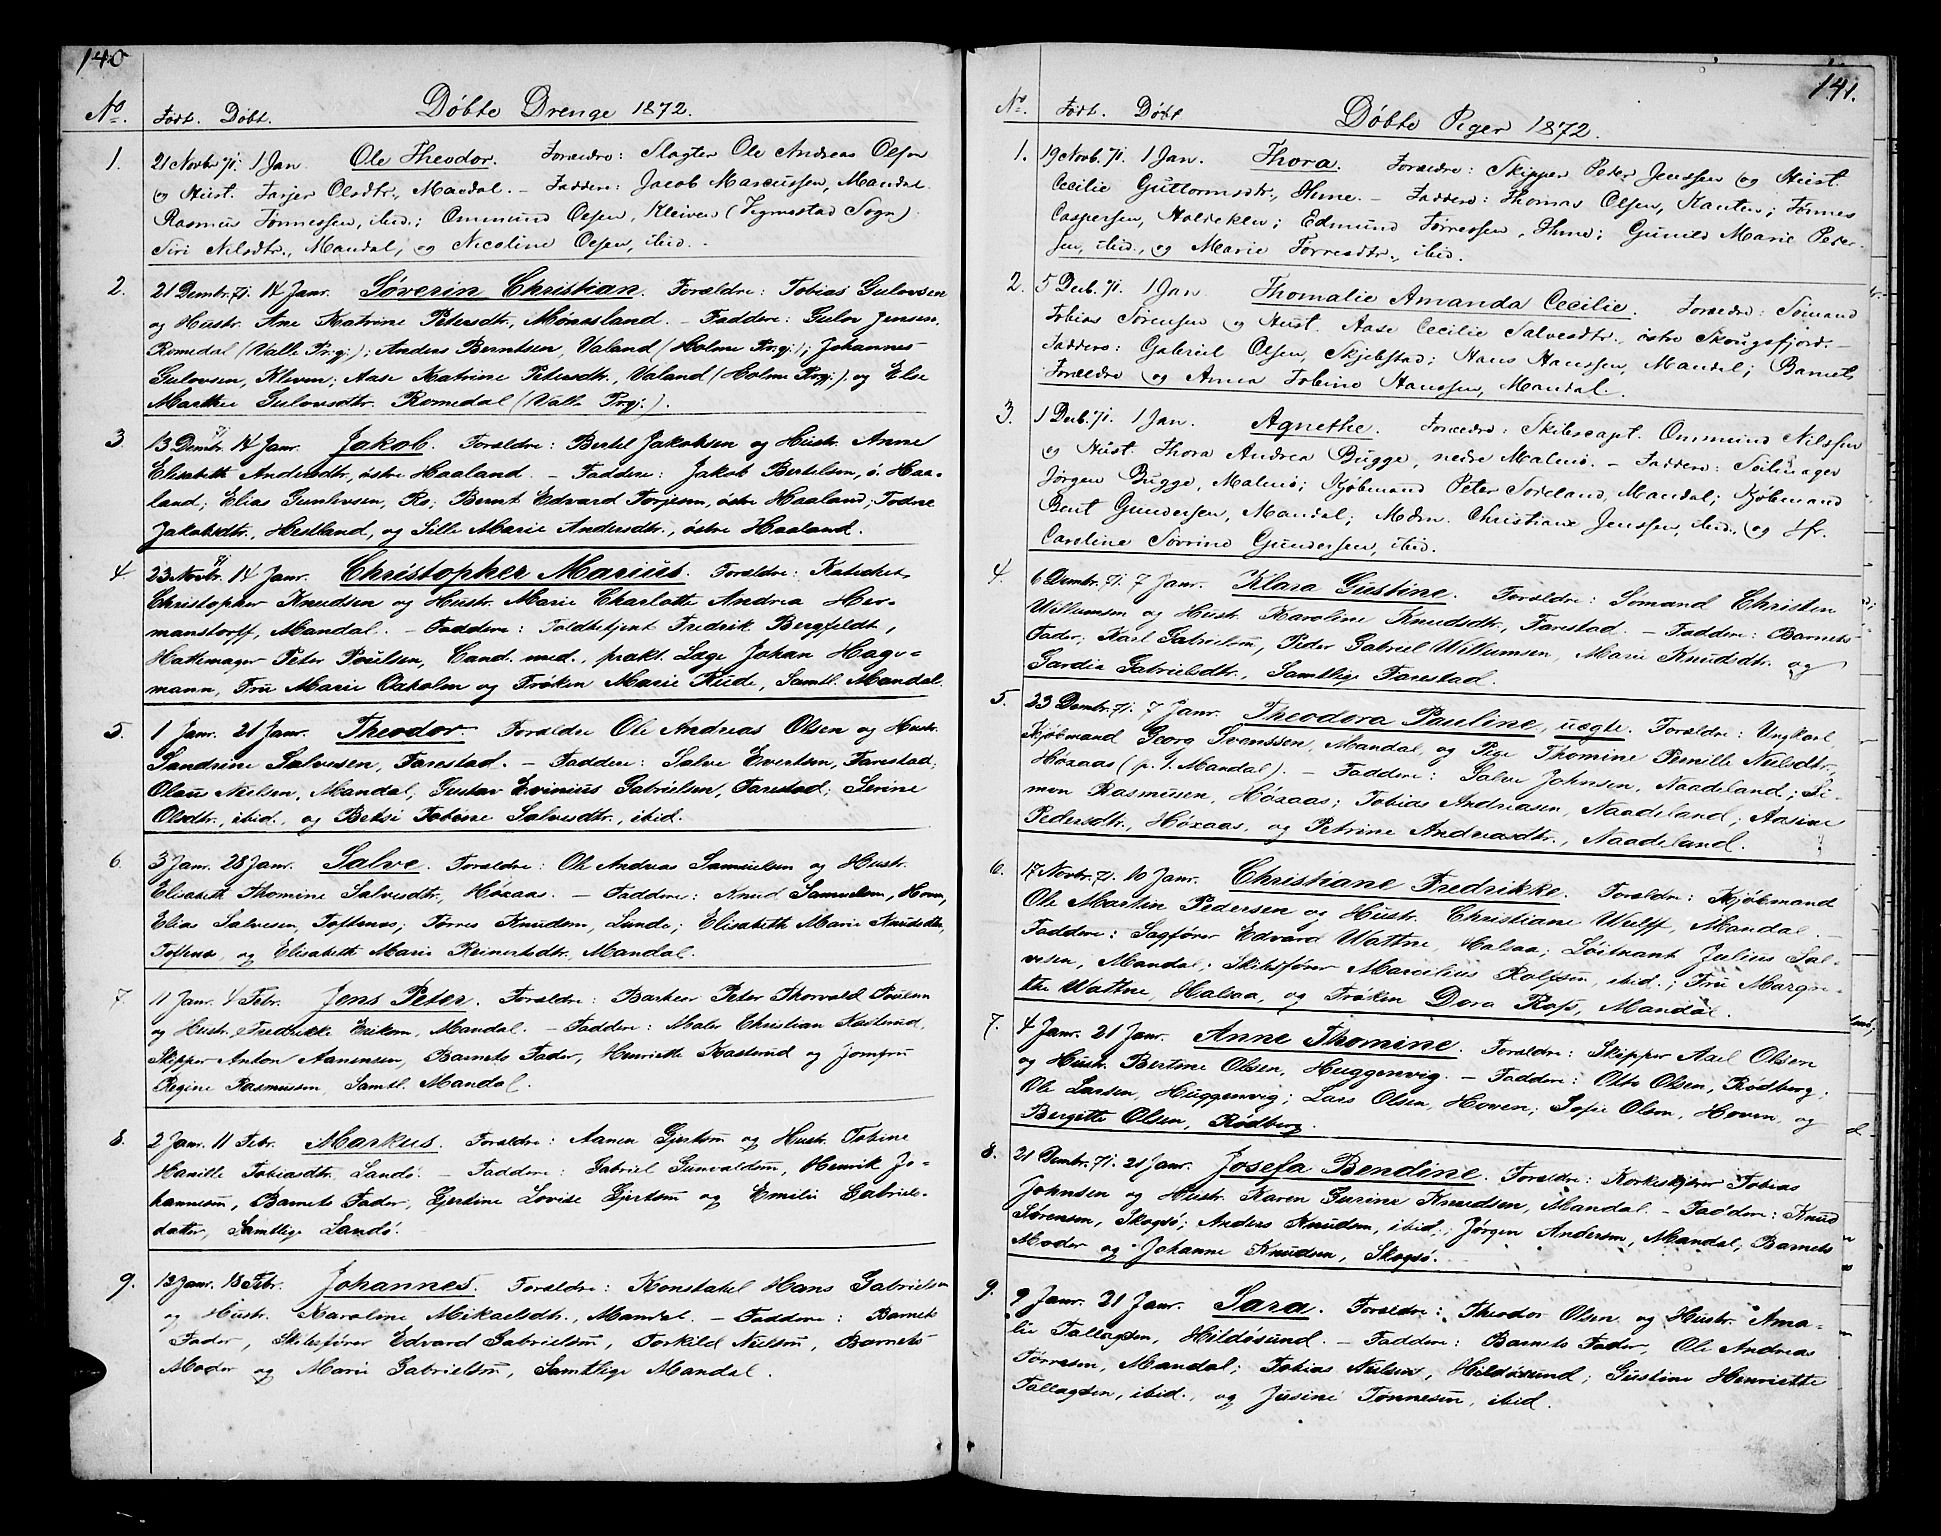 140
No. Født. Døbt. Døbte Drenge 1872.
1. 21 Novbr. 71. 1 Jan. Ole Theodor. Forældre: Slagter Ole Andreas Olsen
og Hust. Tarjer Olsdtr., Mandal. — Faddere: Jacob Marcussen, Mandal
Rasmus Tønnessen, ibid.; Ommund Olsen, Kleiven (Vigmostad Sogn).
Siri Nilsdtr., Mandal, og Nicoline Olsen, ibid.
2. 21 Dembr. 71. 14 Janr. Søverin Christian. Forældre: Tobias Gulovsen
og Hustr. Ane Katrine Petersdtr., Mønasland. — Faddere: Gulov Jensen,
Romedal (Valle Prgj.); Anders Berntsen, Valand (Holme Prgj.); Johannes
Gulovsen, Kleven; Aase Katrine Petersdtr., Valand (Holme Prgj.) og Else
Marthe Gulovsdtr. Romedal (Valle Prgj.).
3. 13 Dembr. 71 14 Janr. Jakob. Forældre: Bertel Jakobsen og Hustr. Anne
Elisabeth Andersdtr, østre Haaland. — Faddere: Jakob Bertelsen, ø. Haa-
land; Elias Gunlevsen, Ro; Bernt Edvard Torjesen, østre Haaland; Todne
Jakobsdtr., Hesland, og Sille Marie Andersdtr., østre Haaland.
4. 23 Novbr. 71 14 Janr. Christopher Marius. Forældre: Katechet
Christopher Knudsen og Hustr. Marie Charlotte Andrea Her-
manstorff, Mandal. — Faddere: Toldbetjent Fredrik Bergfeldt,
Hattemager Peter Poulsen, Cand. med., prakt. Læge Johan Hage-
mann, Fru Marie Oxholm og Frøken Marie Kude, Samtl. Mandal.
5. 1 Janr. 21 Janr. Theodor. Forældre Ole Andreas Olsen og Hustr.
Sandrine Salvesen, Farestad. — Faddere: Salve Evertsen, Farestad,
Olaus Nielsen, Mandal, Gustav Evinius Gabrielsen, Farestad; Serine
Olsdtr., ibid., og Betsi Tobine Salvesdtr., ibid.
6. 3 Janr. 28 Janr. Salve. Forældre: Ole Andreas Samuelsen og Hustr.
Elisabeth Thomine Salvesdtr., Høxaas. — Faddere: Knud Samuelsen, Hoven,
Elias Salvesen, Toftenes; Tørres Knudsen, Lunde; Elisabeth Marie Knudsdtr,
Toftenes, og Elisabeth Marie Reinertsdtr., Mandal.
7. 11 Janr. 4 Febr. Jens Peter. Forældre: Barker Peter Thorvald Poulsen
og Hustr. Fredrikke Eriksen, Mandal. — Faddere: Maler Christian Kasterud,
Skipper Anton Aanensen, Barnets Fader, Henriette Kasterud og Jomfru
Regine Rasmussen, Samtl. Mandal.
8. 2 Janr. 11 Febr. Markus. Forældre: Aanen Gjertsen og Hustr. Tobine
Hanille Tobiasdtr. Landø. — Faddere: Gabriel Gunvaldsen, Henrik Jo-
hannesen, Barnets Fader, Gjertine Lovise Gjertsen og Emilie Gabriels-
datter, Samtlige Landø.
9. 12 Janr. 18 Febr. Johannes. Forældre: Konstabel Hans Gabrielsen
og Hustr. Karoline Mikaelsdtr., Mandal. — Faddere: Barnets
Fader, Skibsfører Edvard Gabrielsen, Torkild Nielsen, Barnets
Moder og Marie Gabrielsen, Samtlige Mandal.
141.
No. Født. Døbt Døbte Piger 1872.
1. 19 Novb. 71. 1 Jan. Thora. Forældre: Skipper Peter Jenssen og Hust.
Cecilie Guttormsdtr., Hime. — Faddere: Thomas Olsen, Kanten; Tønnes
Caspersen, Holdeklev; Edmund Tørressen, Hime; Gunild Marie Peter-
sen, ibid., og Marie Torresdtr., ibid.
2. 5 Decb. 71. 1 Jan. Thomalie Amanda Cecilie. Forældre: Sømand
Tobias Sørensen og Hust. Aase Cecilie Salvesdtr., østre Skougsfjord. —
Faddere: Gabriel Olsen, Skjebstad; Hans Hanssen, Mandal; Barnets
Forældre og Anna Tobine Hanssen, Mandal.
3. 1 Decb. 71. 1 Jan. Agnethe. Forældre: Skibscapt. Ommund Nilssen
og Hust. Thora Andrea Bugge, nedre Malmø. — Faddere: Seilmager
Jørgen Bugge, Malmø; Kjøbmand Peter Soreland, Mandal; Kjøbmand
Bent Gundersen, Mandal; Mdm. Christiane Jenssen, ibid. og Jfr.
Caroline Sovrine Gundersen, ibid.
4. 6 Dembr. 71. 7 Janr. Klara Gustine. Forældre: Sømand Christen
Willumsen og Hustr. Karoline Knudsdtr., Farestad. — Faddere: Barnets
Fader, Karl Gabrielsen, Peder Gabriel Willumsen, Marie Knudsdtr. og
Gardie Gabrielsdtr., Samtlige Farestad.
5. 23 Dembr. 71. 7 Janr. Theodora Pauline, uægte. Forældre: Ungkarl
Kjøbmand Georg Svenssen, Mandal, og Pige Thomine Pernille Nielsdtr.
Høxaas (p. t. Mandal). — Faddere: Salve Johnsen, Naadeland; Si-
mon Rasmusen, Høxaas; Tobias Andreasen, Naadeland; Aasine
Pedersdtr., Høxaas, og Petrine Andreasdtr., Naadeland.
6. 17 Novbr. 71. 10 Janr. Christiane Fredrikke. Forældre: Kjøbmand
Ole Martin Pedersen og Hustr. Christiane Wulff, Mandal. —
Faddere: Sagfører Edvard Wattne, Halsaa; Løitnant Julius Sal-
vesen, Mandal; Skibsfører Marcilius Rolfsen, ibid.; Fru Margre-
the Wattne, Halsaa, og Frøken Dora Ross, Mandal.
7. 4 Janr. 21 Janr. Anne Thomine. Forældre: Skipper Axel Olsen
og Hustr. Bertine Olsen, Huggenvig. — Faddere: Otto Olsen, Rødberg;
Ole Larsen, Huggenvig; Lars Olsen, Hoven; Sofie Olsen, Hoven, og
Bergitte Olsen, Rødberg.
8. 21 Dembr. 71. 21 Janr. Josefa Bendine. Forældre: Korkeskjærer Tobias
Johnsen og Hustr. Karen Gurine Knudsen, Mandal. — Faddere: Knud
Sørensen, Skogsø; Anders Knudsen, ibid.; Jørgen Andersen, Mandal, Barnets
Moder og Johanne Knudsen, Skogsø.
9. 9 Janr. 21 Janr. Sara. Forældre: Theodor Olsen og Hustr. Ama-
lie Tallagsen, Hildøsund. — Faddere: Barnets Fader, Ole Andreas
Tørresen, Mandal; Tobias Nielsen, Hildøsund; Gustine Henriette
Tallagsen, ibid., og Jusine Tønnesen, ibid.